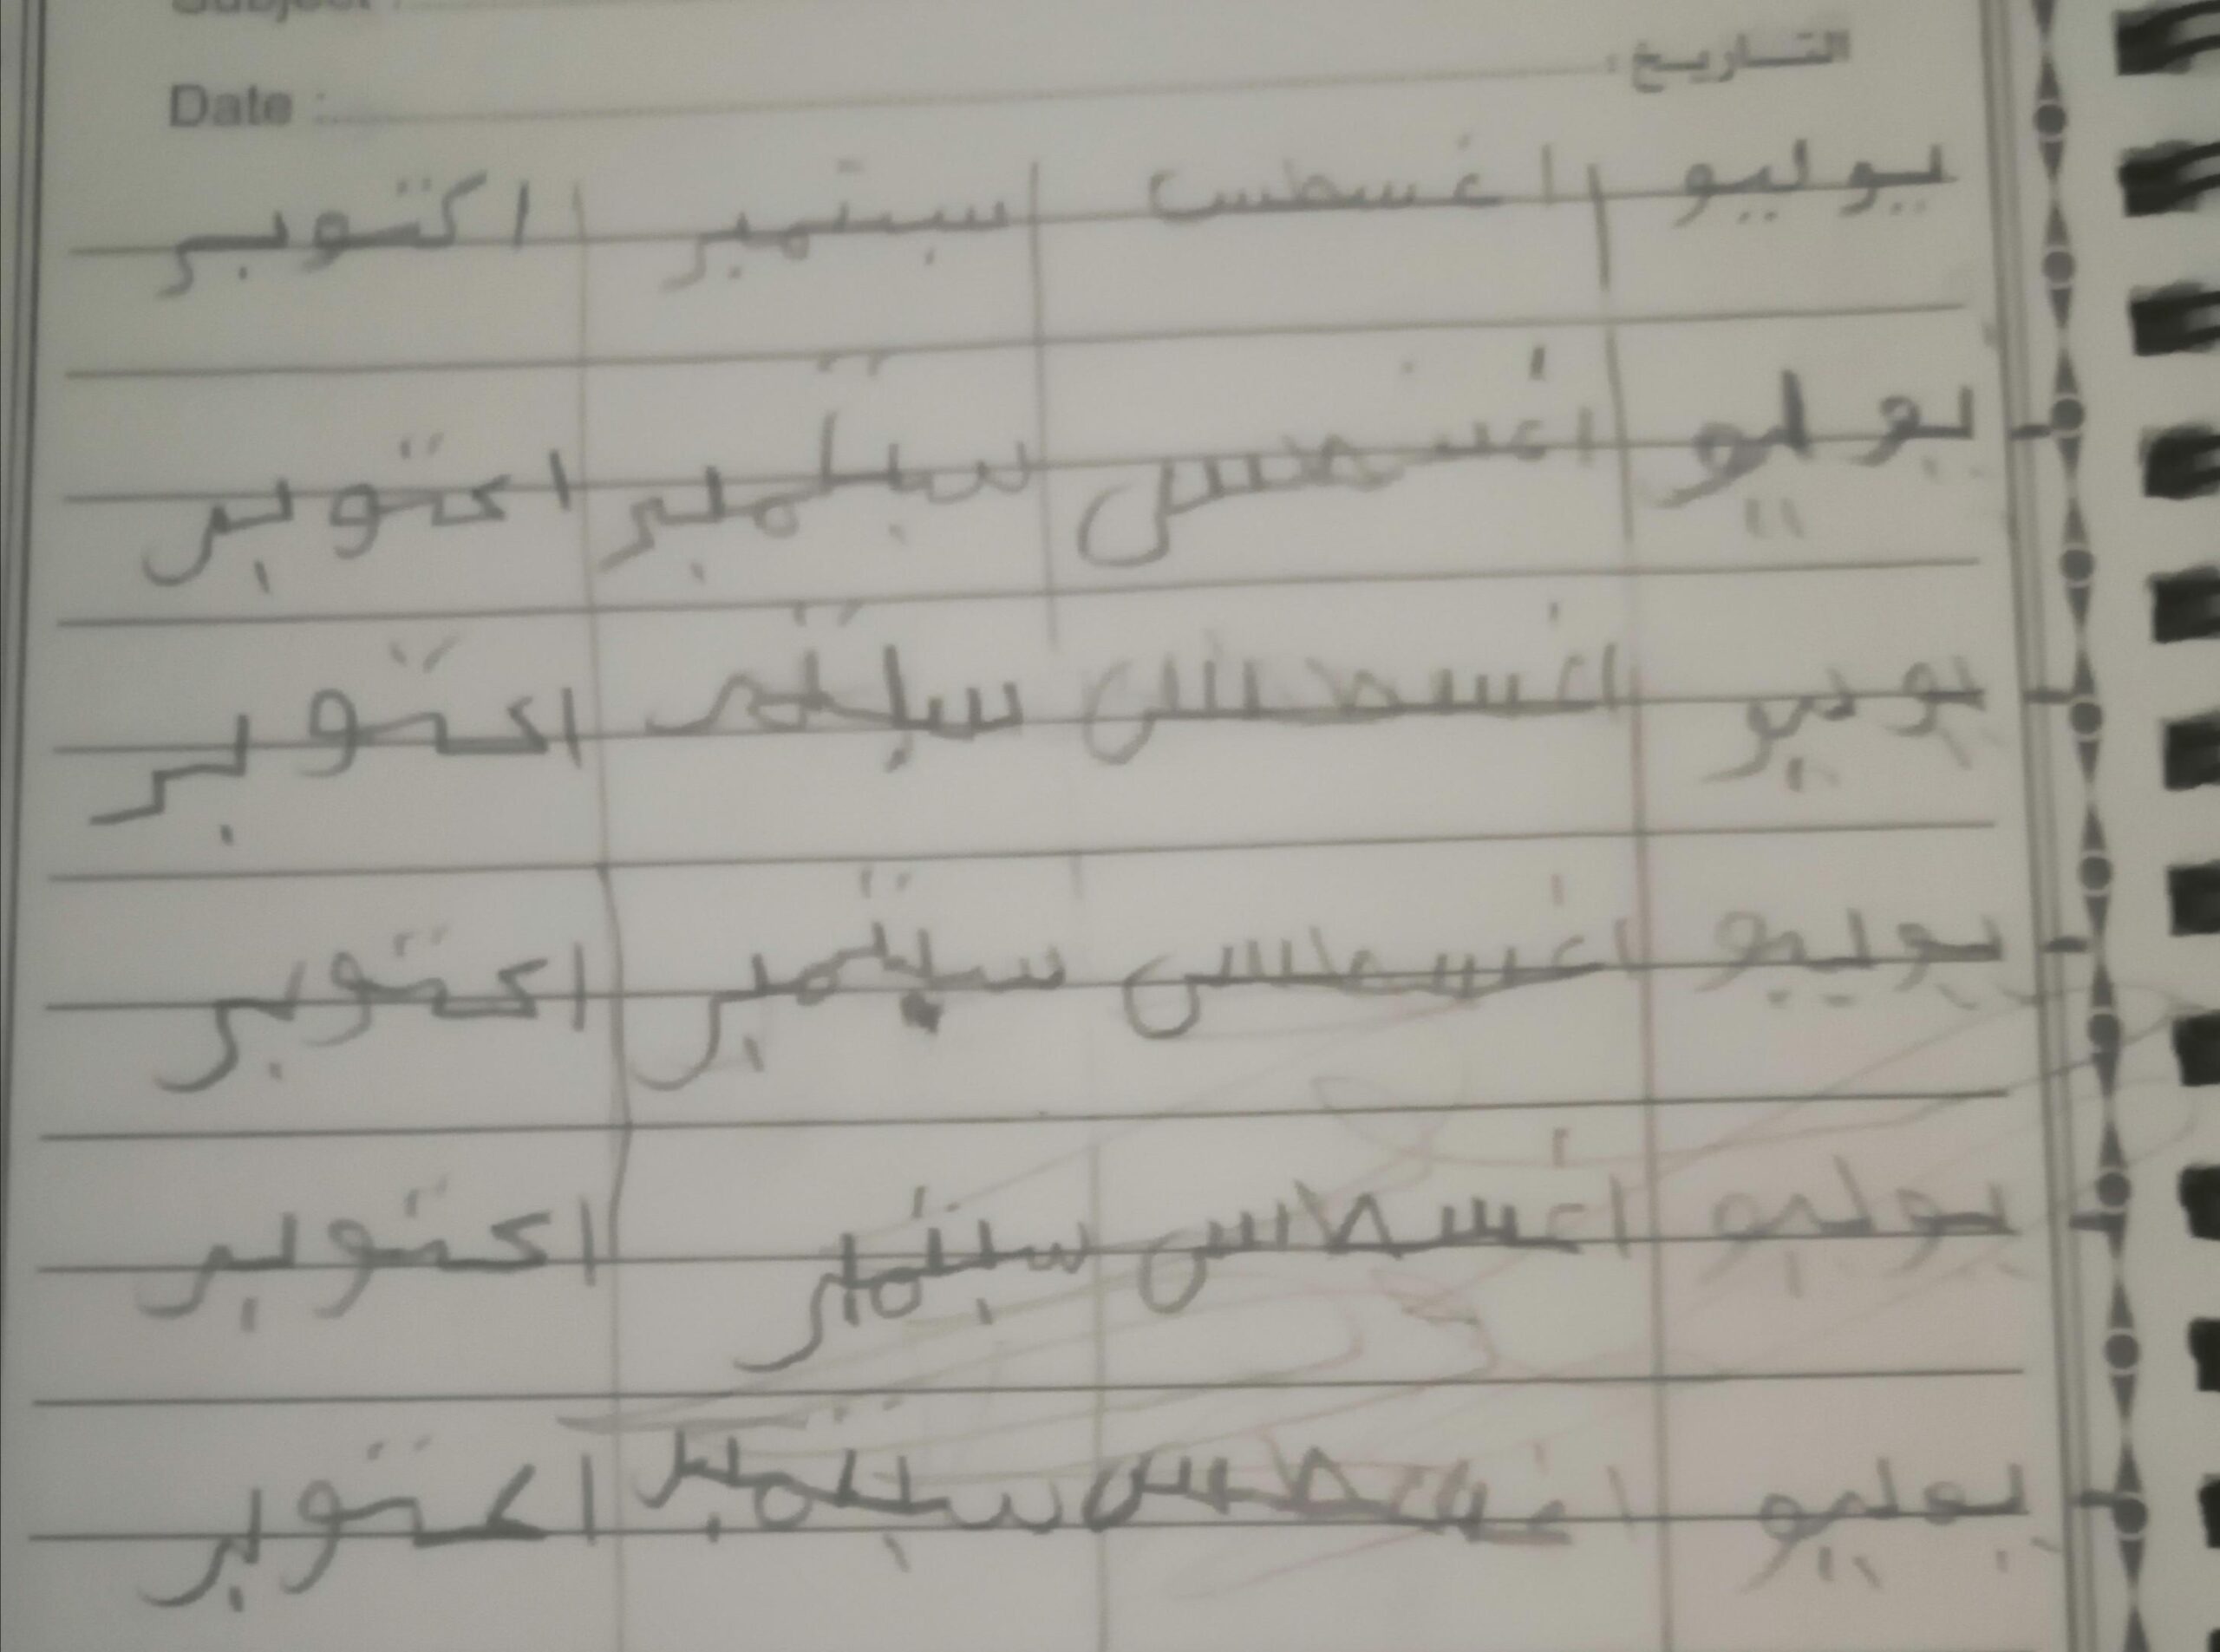 Subject :
Date : التاريخ :
يوليو اغسطس سبتمبر اكتوبر
يوليو اغسطس سبتمبر اكتوبر
يوليو اغسطس اكتوبر
يوليو اغسطس سبتمبر اكتوبر
يوليو اغسطس سبتمبر اكتوبر
يوليو اغسطس سبتمبر اكتوبر